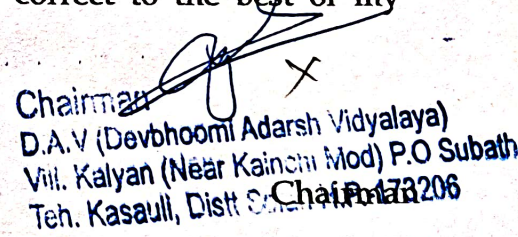 correct to the best of my
Chairman
D.A.V (Devbhoomi Adarsh Vidyalaya)
Vill. Kalyan (Near Kainchi Mod) P.O Subath
Teh. Kasauli, Distt
Chairman
206